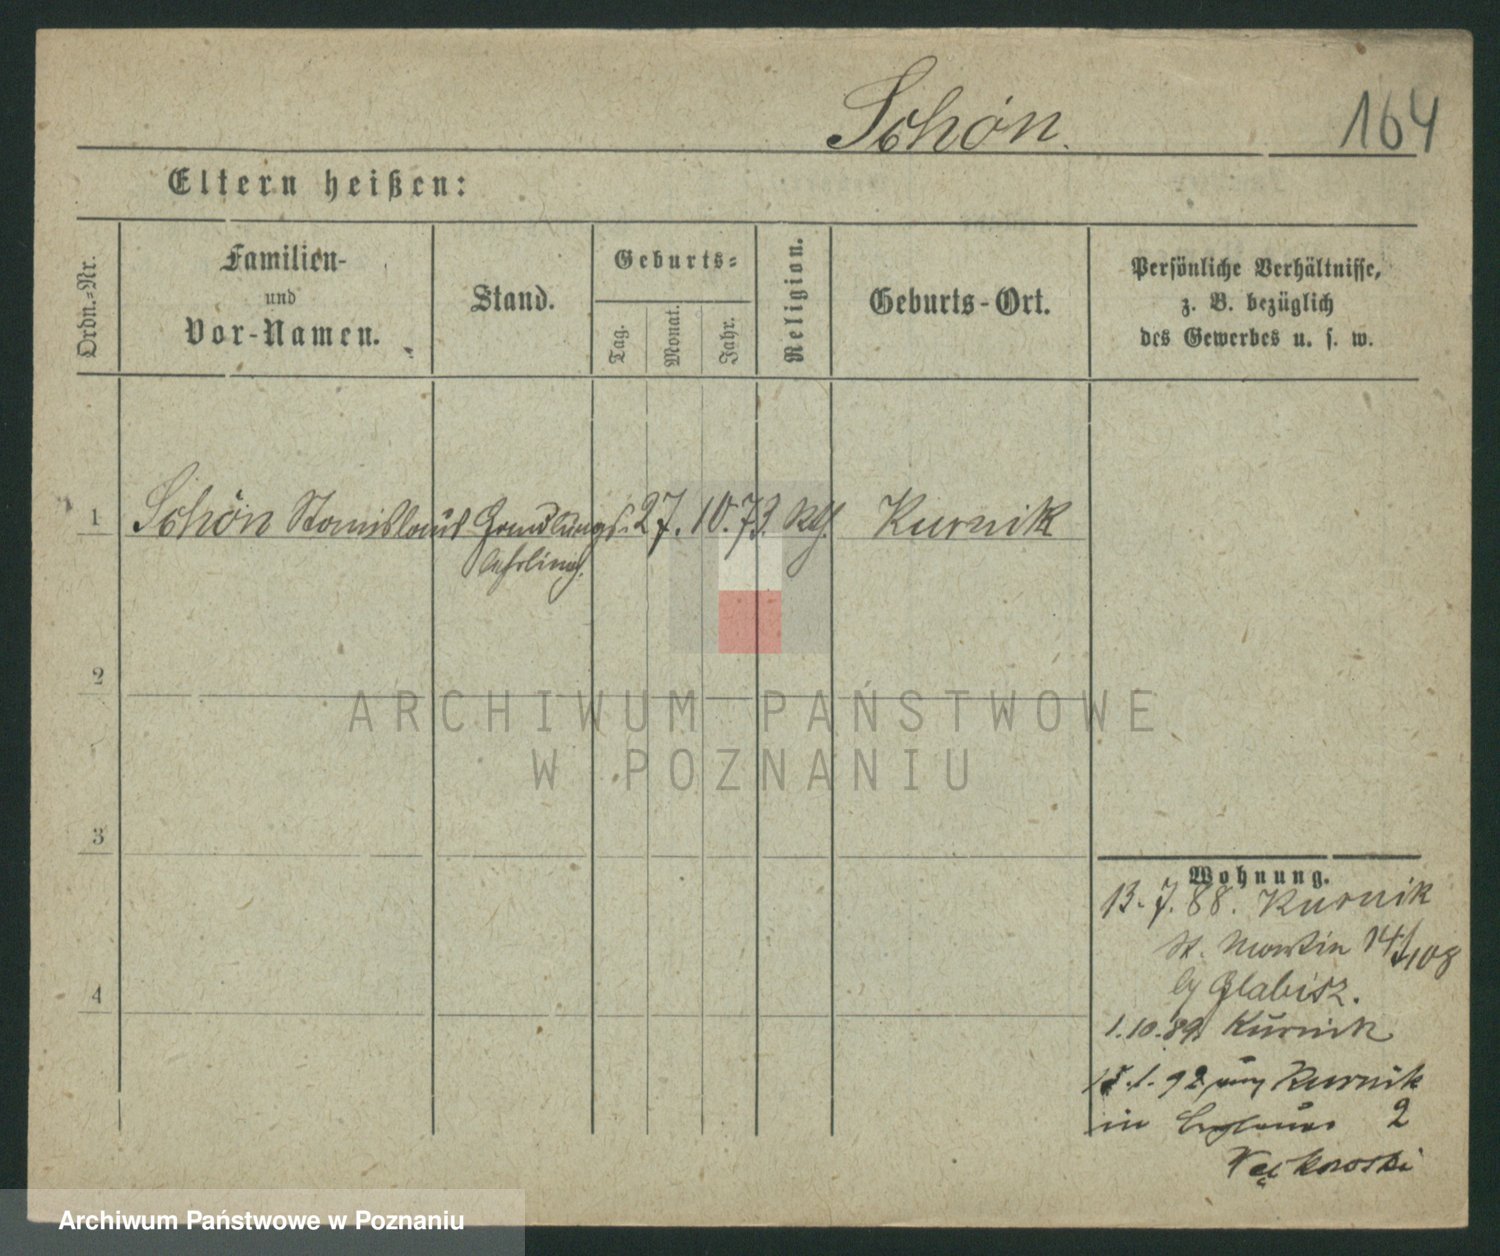 Schön.
164
Eltern heißen:
Ordn.-Nr.
Familien-
und
Vor-Namen.
Stand.
Geburts-
Tag.
Monat.
Jahr.
Religion.
Geburts-Ort.
Persönliche Verhältnisse,
z. B. bezüglich
des Gewerbes u. s. w.
1 Schön Stanislaus Handlungs- 27. 10. 73. kth. Kurnik
lehrling.
2
3
4
Wohnung.
13. 7. 88. Kurnik
St. Martin 14/
by Glabisz.
1. 10. 89. Kurnik
15. 1. 92 Kurnik
in 2
Węckowski
ARCHIWUM PAŃSTWOWE
W POZNANIU
Archiwum Państwowe w Poznaniu